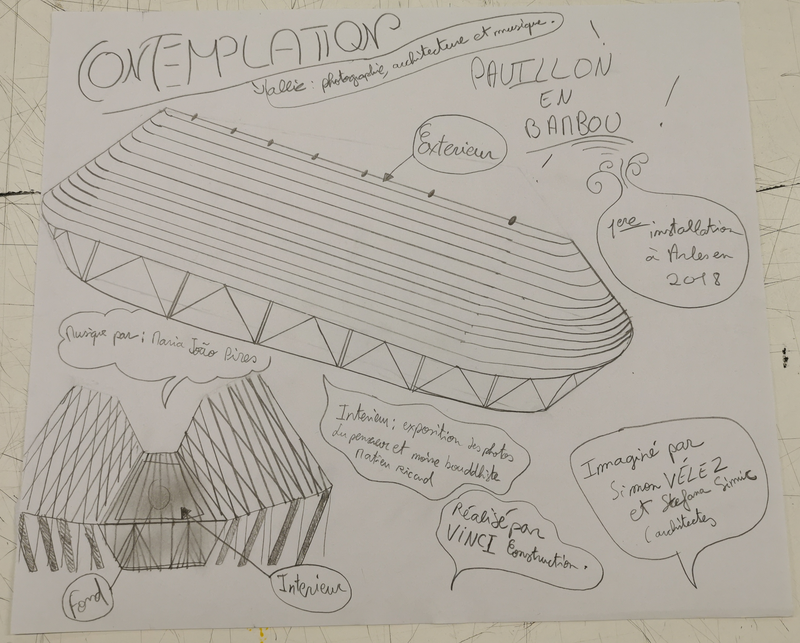 CONTEMPLATION
Mallie : photographie, architecture et musique.
PAVILLON
EN
BAMBOU
Exterieur
1ere installation
à Arles en
2018
Musique par : Maria João Pires
Interieur : exposition des photos
du penseur et moine bouddhiste
Matieu ricard
Imaginé par
Simon VÉLEZ
et Stefana Simic
(architectes
Réalisé par
VINCI Construction.
Fond
Interieur